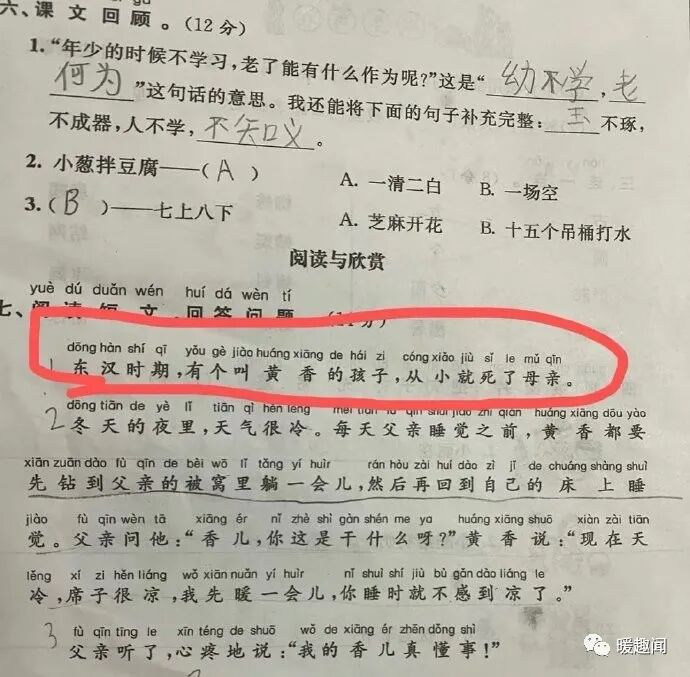 六、课文回顾。(12分)
1.“年少的时候不学习,老了能有什么作为呢?”这是“幼不学,老
何为”这句话的意思。我还能将下面的句子补充完整:玉不琢,
不成器,人不学,不知义。
2. 小葱拌豆腐——(A) A. 一清二白 B. 一场空
3.(B)——七上八下 A. 芝麻开花 B. 十五个吊桶打水
阅读与欣赏
yuè dú duǎn wén huí dá wèn tí
七、阅读短文,回答问题。
dōng hàn shí qī yǒu gè jiào huáng xiāng de hái zi cóng xiǎo jiù sǐ le mǔ qīn
1 东汉时期,有个叫黄香的孩子,从小就死了母亲。
dōng tiān de yè lǐ tiān qì hěn lěng měi tiān fù qīn shuì jiào zhī qián huáng xiāng dōu yào
2 冬天的夜里,天气很冷。每天父亲睡觉之前,黄香都要
xiān zuān dào fù qīn de bèi wō lǐ tǎng yí huìr rán hòu zài huí dào zì jǐ de chuáng shàng shuì
先钻到父亲的被窝里躺一会儿,然后再回到自己的床上睡
jiào fù qīn wèn tā xiāng ér nǐ zhè shì gàn shén me ya huáng xiāng shuō xiàn zài tiān
觉。父亲问他:“香儿,你这是干什么呀?”黄香说:“现在天
lěng xí zi hěn liáng wǒ xiān nuǎn yí huìr nǐ shuì shí jiù bù gǎn dào liáng le
冷,席子很凉,我先暖一会儿,你睡时就不感到凉了。”
fù qīn tīng le xīn téng de shuō wǒ de xiāng ér zhēn dǒng shì
3 父亲听了,心疼地说:“我的香儿真懂事!”
暖趣闻